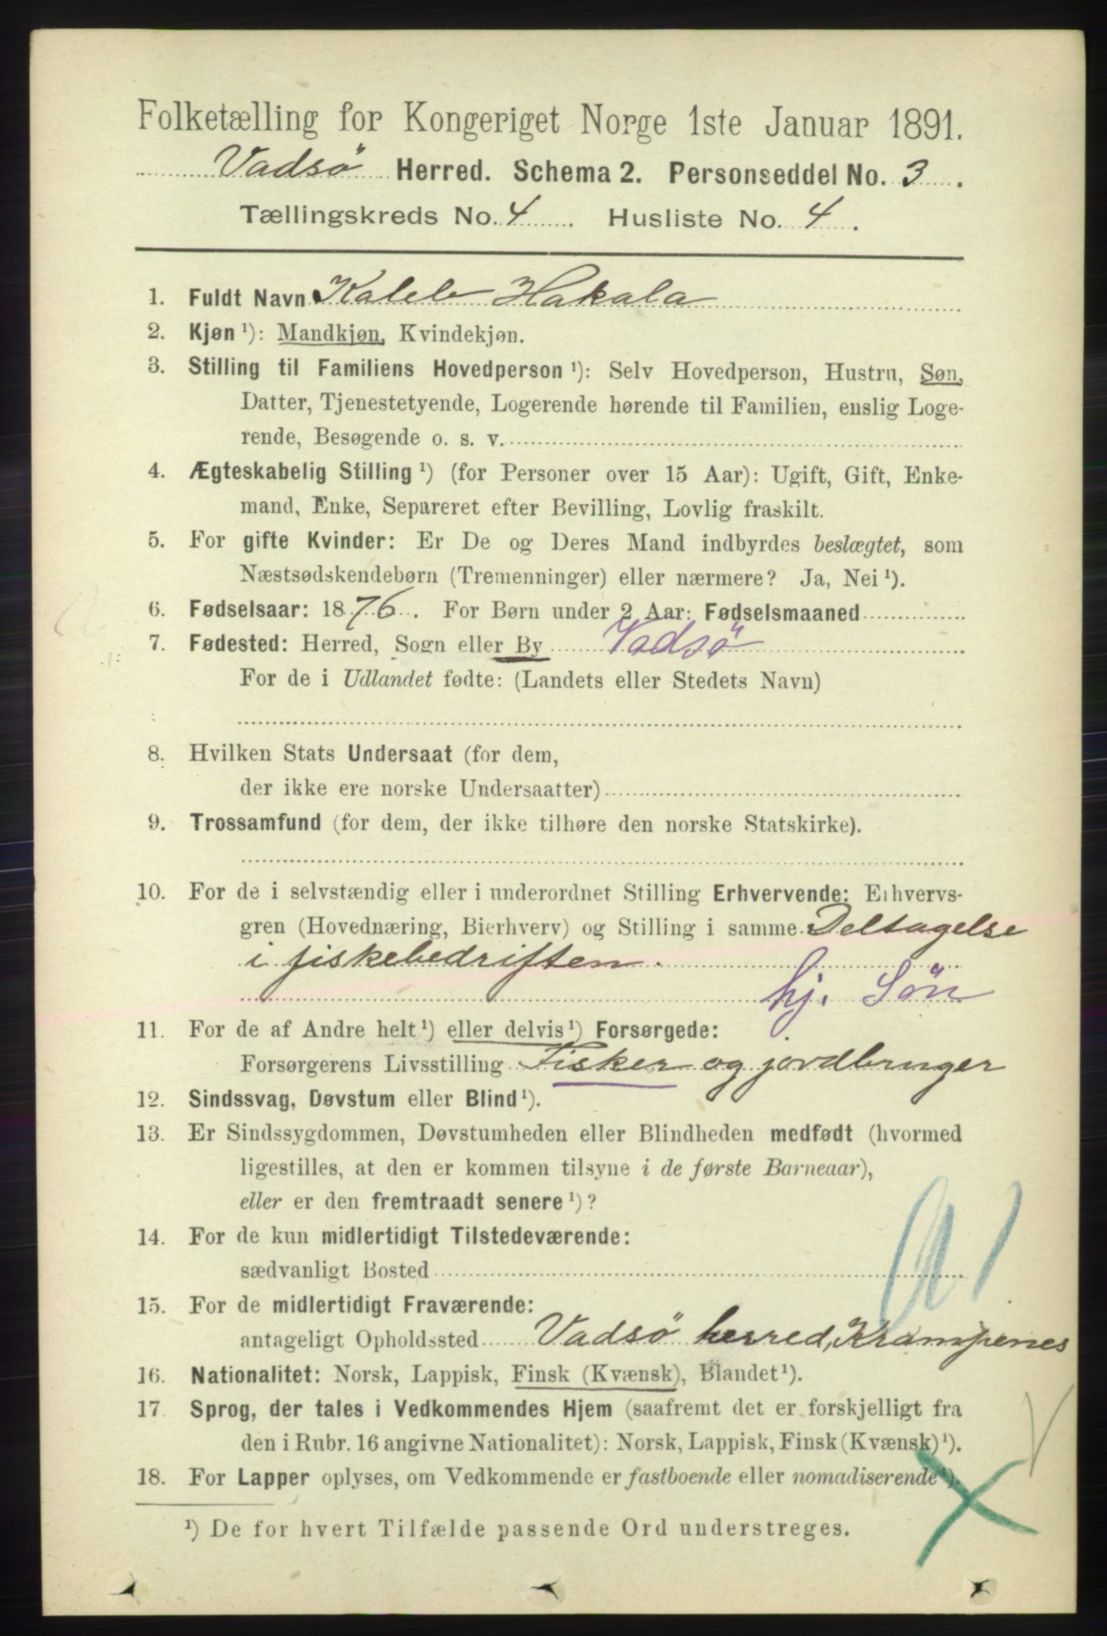 Folketælling for Kongeriget Norge 1ste Januar 1891.
Vadsø Herred. Schema 2. Personseddel No. 3.
Tællingskreds No. 4. Husliste No. 4.
1. Fuldt Navn Kaleb Hakala
2. Kjøn ¹): Mandkjøn, Kvindekjøn.
3. Stilling til Familiens Hovedperson ¹): Selv Hovedperson, Hustru, Søn,
Datter, Tjenestetyende, Logerende hørende til Familien, enslig Loge-
rende, Besøgende o. s. v.
4. Ægteskabelig Stilling ¹) (for Personer over 15 Aar): Ugift, Gift, Enke-
mand, Enke, Separeret efter Bevilling, Lovlig fraskilt.
5. For gifte Kvinder: Er De og Deres Mand indbyrdes beslægtet, som
Næstsødskendebørn (Tremenninger) eller nærmere? Ja, Nei ¹).
6. Fødselsaar: 1876. For Børn under 2 Aar: Fødselsmaaned
7. Fødested: Herred, Sogn eller By Vadsø
For de i Udlandet fødte: (Landets eller Stedets Navn)
8. Hvilken Stats Undersaat (for dem,
der ikke ere norske Undersaatter)
9. Trossamfund (for dem, der ikke tilhøre den norske Statskirke).
10. For de i selvstændig eller i underordnet Stilling Erhvervende: Erhvervs-
gren (Hovednæring, Bierhverv) og Stilling i samme. Deltagelse
i fiskebedriften.
hj. Søn
11. For de af Andre helt ¹) eller delvis ¹) Forsørgede:
Forsørgerens Livsstilling Fisker og jordbruger
12. Sindssvag, Døvstum eller Blind ¹).
13. Er Sindssygdommen, Døvstumheden eller Blindheden medfødt (hvormed
ligestilles, at den er kommen tilsyne i de første Barneaar),
eller er den fremtraadt senere ¹)?
14. For de kun midlertidigt Tilstedeværende:
sædvanligt Bosted
15. For de midlertidigt Fraværende:
antageligt Opholdssted Vadsø herred, Krampenes
16. Nationalitet: Norsk, Lappisk, Finsk (Kvænsk), Blandet ¹).
17 Sprog, der tales i Vedkommendes Hjem (saafremt det er forskjelligt fra
den i Rubr. 16 angivne Nationalitet): Norsk, Lappisk, Finsk (Kvænsk) ¹).
18. For Lapper oplyses, om Vedkommende er fastboende eller nomadiserende ¹).
¹) De for hvert Tilfælde passende Ord understreges.